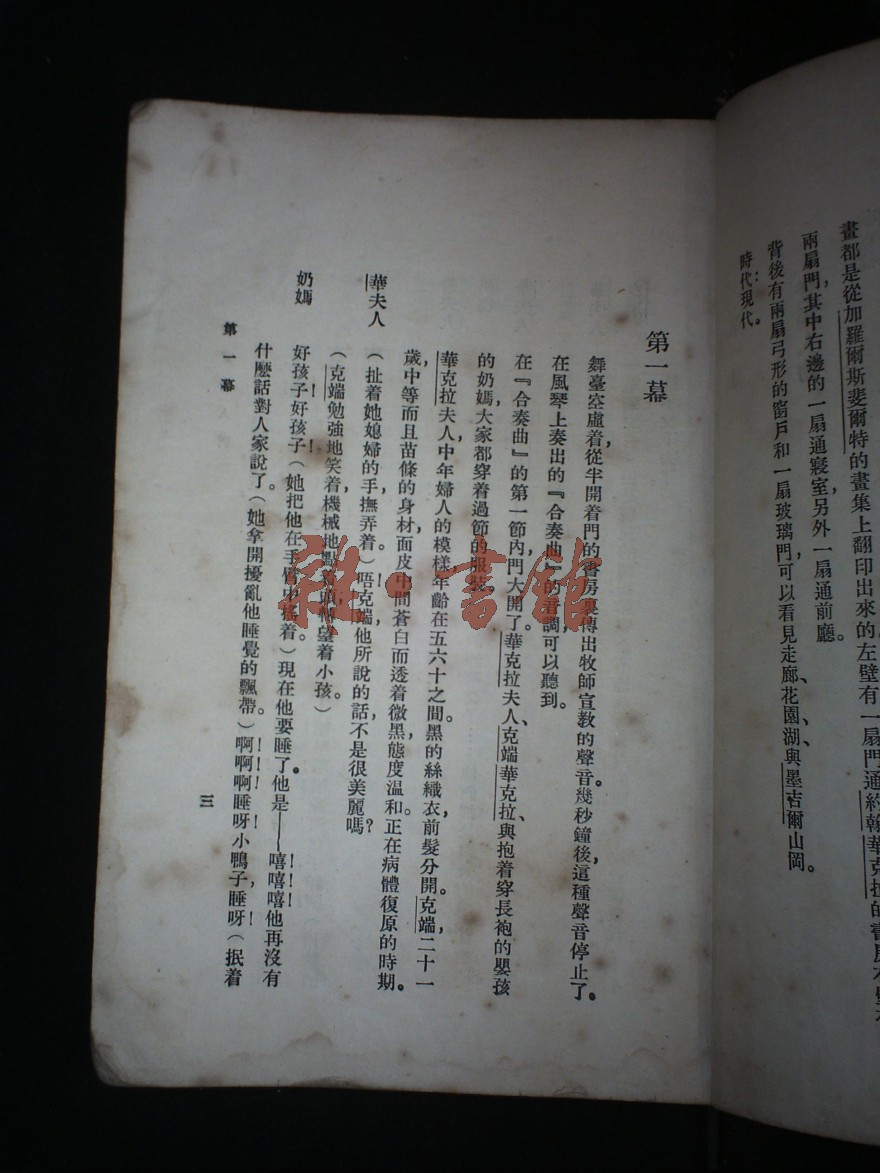 畫都是從加羅爾斯斐爾特的畫集上翻印出來的左壁有一扇門通約翰華克拉的書房
兩扇門，其中右邊的一扇通寢室另外一扇通前廳。
背後有兩扇弓形的窗戶和一扇玻璃門可以看見走廊、花園、湖與墨吉爾山岡。
時代：現代。
第一幕
舞臺空虛着，從半開着門的書房裏傳出牧師宣教的聲音。幾秒鐘後，這種聲音停止了。
在風琴上奏出的『合奏曲』的音調可以聽到。
在『合奏曲』的第一節內門大開了。華克拉夫人、克端華克拉、與抱着穿長袍的嬰孩
的奶媽，大家都穿着過節的服裝。
華克拉夫人，中年婦人的模樣，年齡在五六十之間。黑的絲織衣，前髮分開。克端，二十一
歲，中等而且苗條的身材，面皮中間蒼白而透着微黑，態度溫和，正在病體復原的時期。
華夫人　（扯着她媳婦的手，撫弄着。）唔！克端，他所說的話，不是很美麗嗎？
（克端勉強地笑着，機械地點着頭，轉望着小孩。）
奶媽　好孩子！好孩子！（她把他在手臂中搖着。）現在他要睡了。他是——嘻！嘻！嘻！他再沒有
什麽話對人家說了。（她拿開擾亂他睡覺的飄帶。）啊！啊！啊！睡呀！小鴨子，睡呀！（抿着
第一幕
三
雜·書館